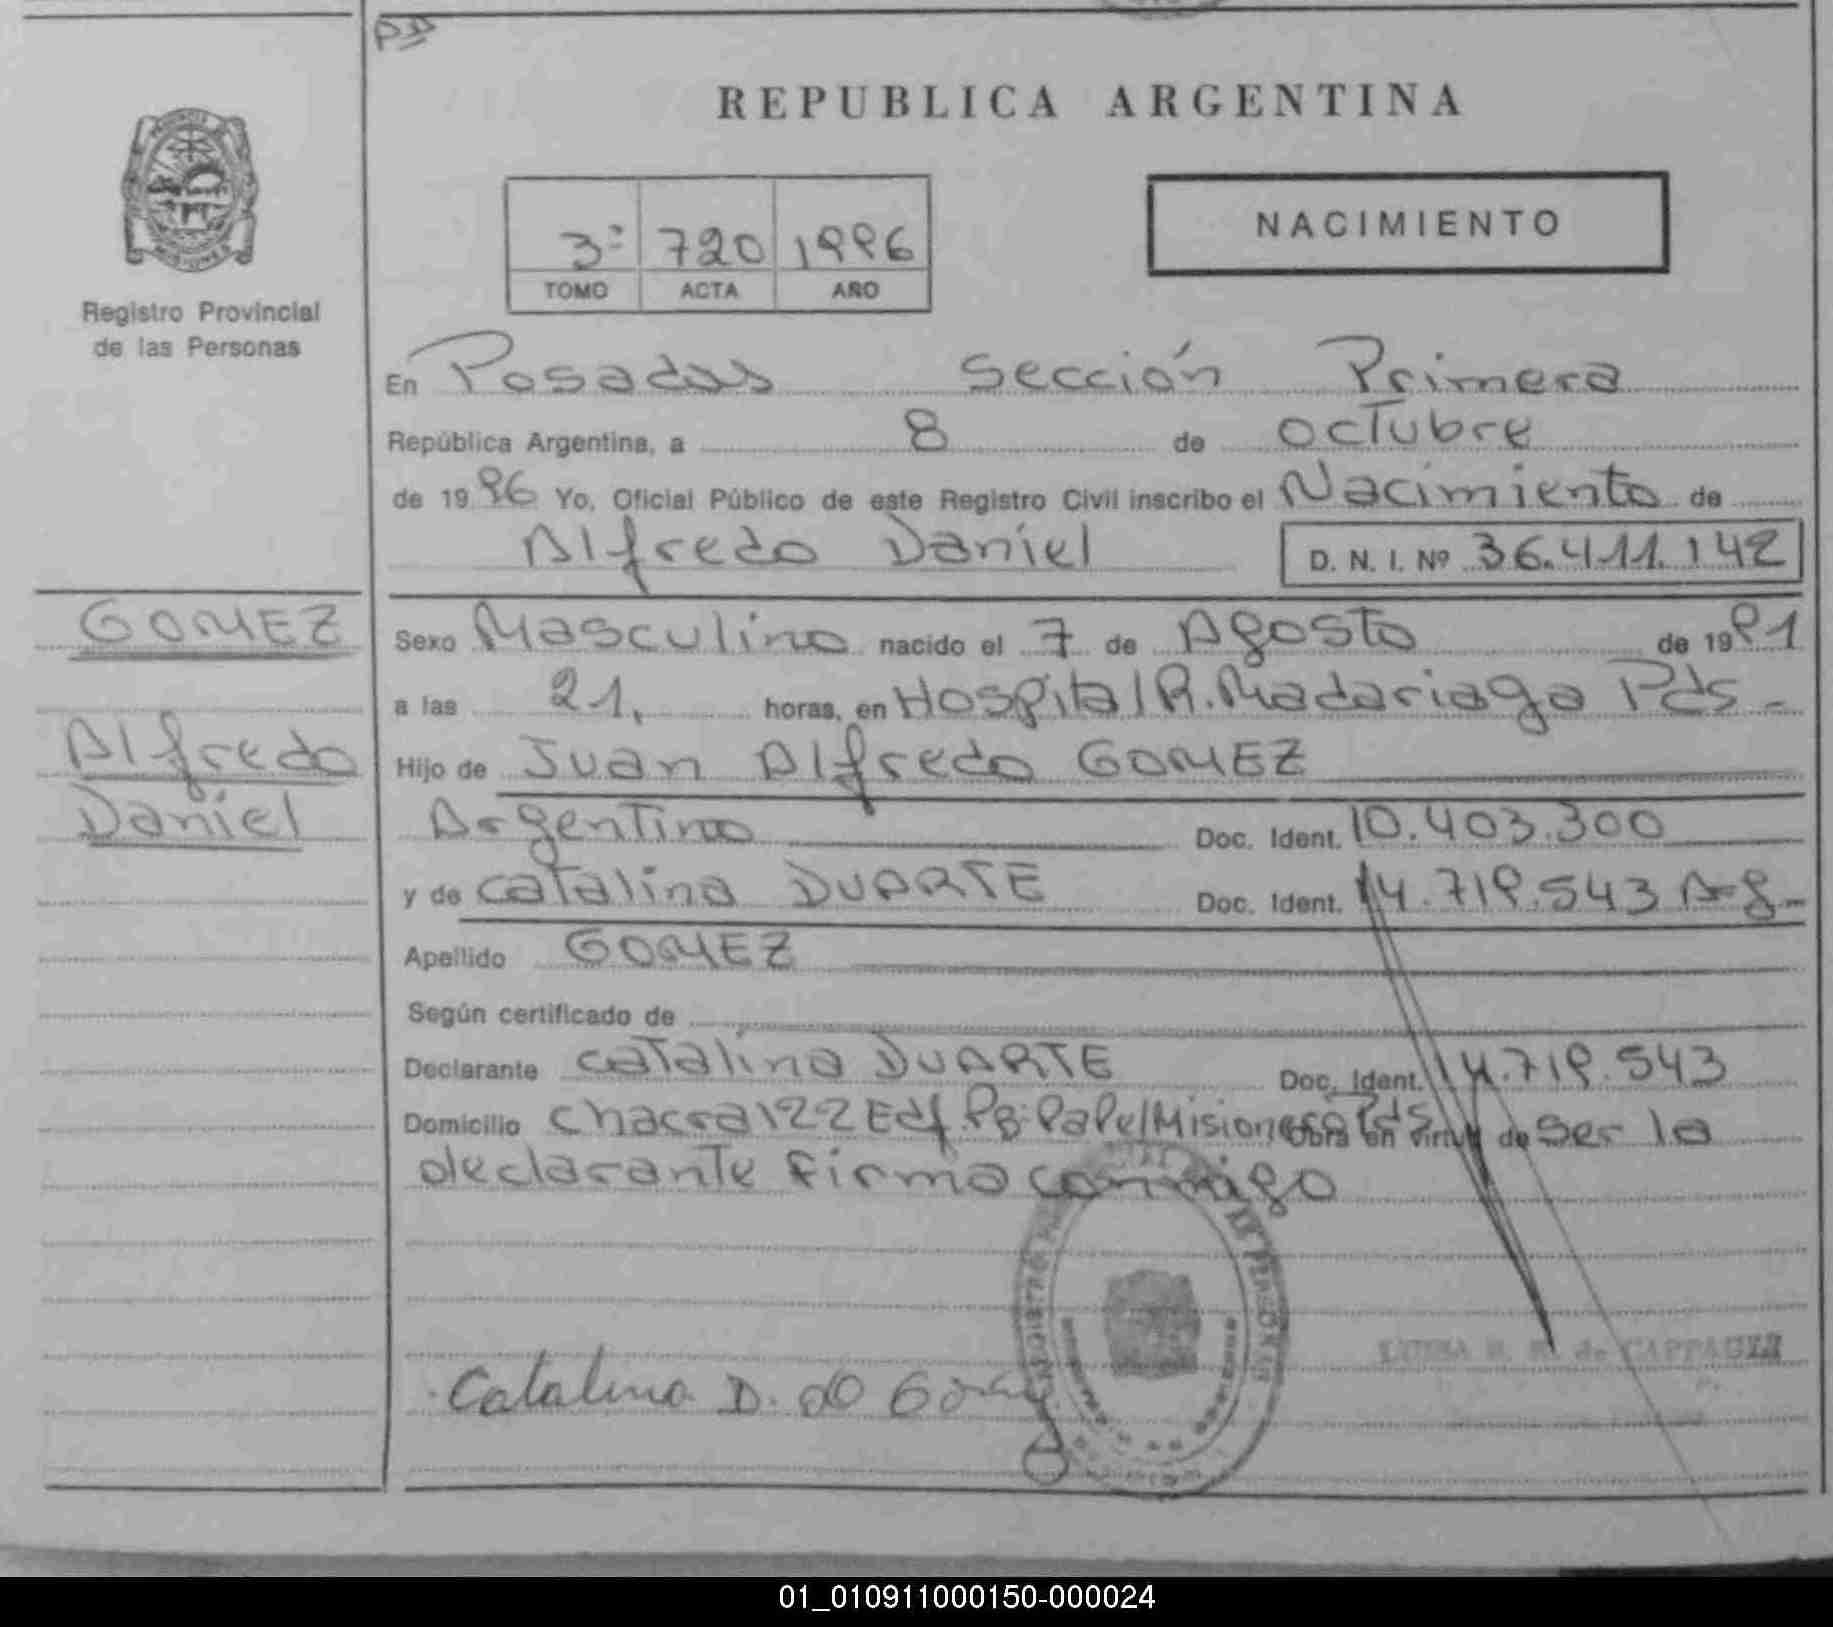 PDS
REPUBLICA ARGENTINA
NACIMIENTO
3º 720 1996
TOMO ACTA AÑO
Registro Provincial
de las Personas
En Posadas Sección Primera
República Argentina, a 8 de octubre
de 1996 Yo, Oficial Público de este Registro Civil inscribo el Nacimiento de
Alfredo Daniel D. N. I. Nº 36.411.142
GOMEZ
Alfredo
Daniel
Sexo Masculino nacido el 7 de Agosto de 1991
a las 21, horas, en Hospital R. Madariaga Pds -
Hijo de Juan Alfredo GOMEZ
Argentino Doc. Ident. 10.403.300
y de Catalina DUARTE Doc. Ident. 14.719.543 Arg.
Apellido GOMEZ
Según certificado de
Declarante Catalina DUARTE Doc. Ident. 14.719.543
Domicilio Chacra 122 Edf. PB. Papel Misionero Pds Obra en virtud de Ser la
declarante firma conmigo
Catalina D. de Gomez
de CAPPAGLI
01_010911000150-000024